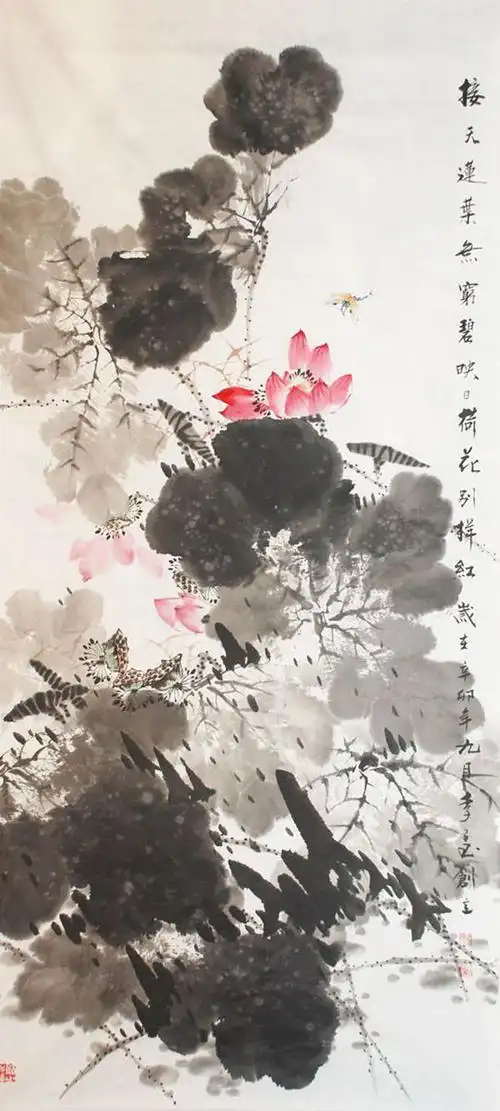 接天蓮葉無窮碧映日荷花別样紅歲在辛卯年九月李